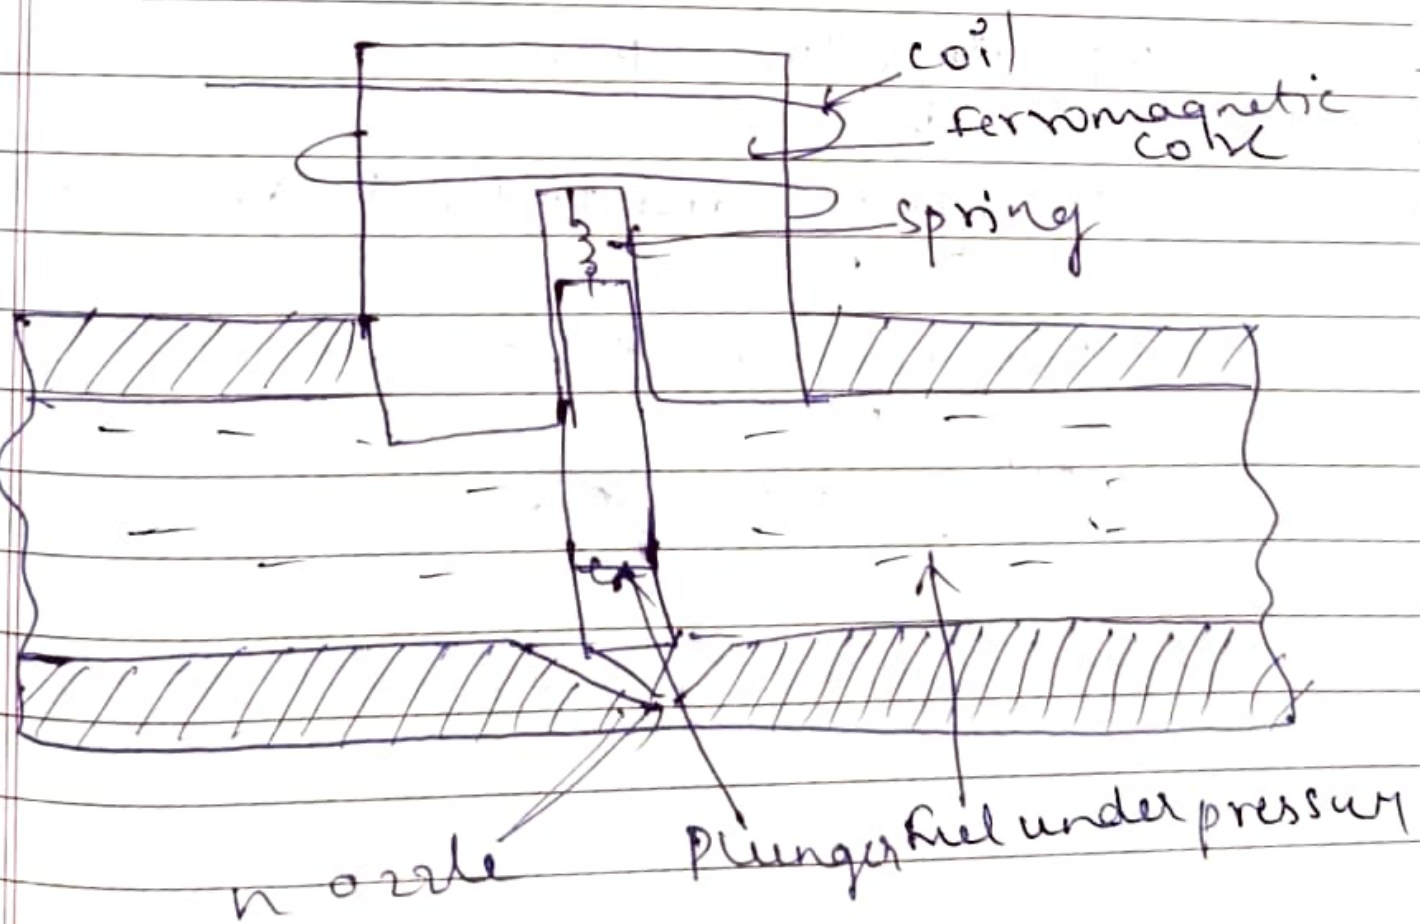 coil
ferromagnetic
core
spring
nozzle
Plunger
fuel under pressur